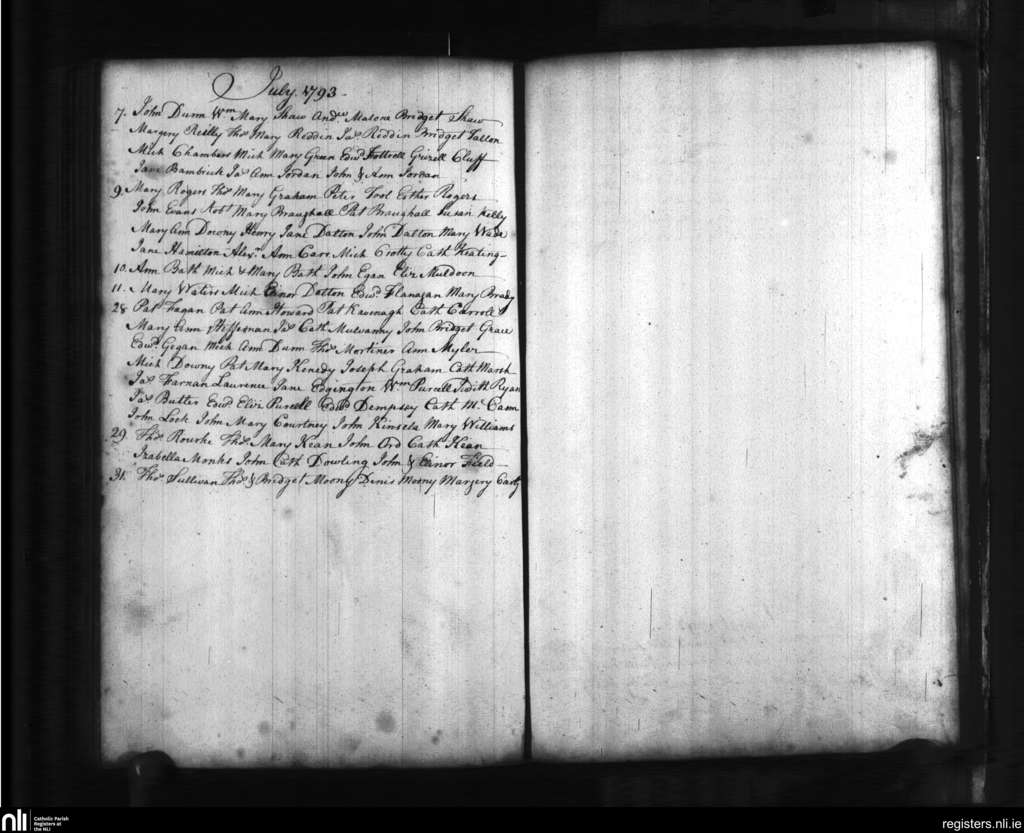 July. 1793.
7. John Dunn Wm Mary Shaw Andw Malone Bridget Shaw
Margery Reilly Thos Mary Reddin Jas Reddin Bridget Fallon
Mich Chambers Mich Mary Green Edwd Fottrell Grizell Cluff
Jane Bambrick Jas Ann Jordan John & Ann Jordan
9. Mary Rogers Thos Mary Graham Peter Tool Esther Rogers
John Evans Robt Mary Braughall Pat Braughall Susan Kelly
Mary Ann Downy Henry Jane Dalton John Dalton Mary Wade
Jane Hamilton Alexr Ann Carr Mich Crotty Cath Keating
10. Ann Bath Mich & Mary Bath John Egan Eliz Muldoon
11. Mary Waters Mich Elinor Datton Edwd Flanagan Mary Brady
28 Pat Fagan Pat Ann Howard Pat Kavenagh Cath Carroll
Mary Ann Heffernan Jas Cath Mulvanny John Bridget Grace
Edwd Gegan Mich Ann Dunn Thos Mortimer Ann Myler
Mich Downy Pat Mary Kenedy Joseph Graham Cath Marsh
Jas Farnan Laurence Jane Edgington Wm Purcell Judith Ryan
Jas Butler Edwd Eliz Purcell Edwd Dempsey Cath Mc Cann
John Lock John Mary Courtney John Kinsela Mary Williams
29 Thos Rourke Thos Mary Kean John Ord Cath Kean
Izabella Monks John Cath Dowling John & Elinor Field
31. Thos Sullivan Thos & Bridget Moony Denis Moony Margery Carty
nli Catholic Parish
Registers at
the NLI
registers.nli.ie